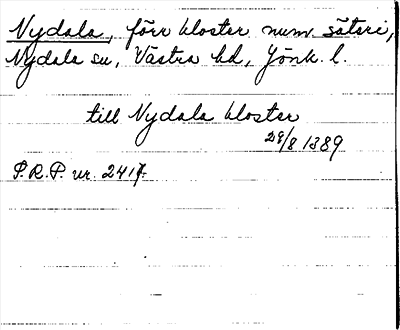 Nydala, förr kloster num. säteri,
Nydala su, Västra hd, Jönk. l.
till Nydala kloster
29/8 1389
P.R.P. nr. 2417.